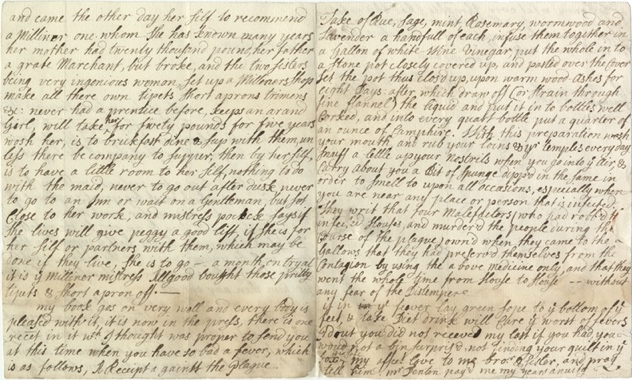 and came the other day her self to recommend
a Millner one whom she has known many years
her mother had twenty thousand pound, her father
a grate Marchant, but broke, and the two sisters
being very ingenious women, set up a Millnors shop
make all there own tipets short aprons trimens
&c: never had a prentice before, keeps an arand
Girl, will take her for twety pounds for five years
wosh her, is to brickfast dine & sup with them, un
less there be company to supper, then by her self,
is to have a little room to her self, nothing to do
with the maid, never to go out after dusk, never
to go to an Inn or wait on a Gentleman, but set
close to her work, and mistress says if
she lives will give peggy a good lift, if she is for
her self or partners with them, which may be
one if they live. she is to go - a month, on tryal
it is of Millinor mistress Allgood bought those pretty
tiputs & short apron off. —
my book gos on very well and every body is
pleased with it, it is now in the press, there is one
recet in it wch I thought was proper to send you
at this time when you have so bad a fever, which
is as follows, A Receipt against the Plague.
Take of Rue, Sage, mint, Rosemary, wormwood and
Lavender a handfull of each, infuse them together in
a Gallon of white Wine Vinegar put the whole in to
a stone pot closely covered up, and pasted over the cover
Set the pot thus Closd up, upon warm wood ashes for
eight Days after which draw off (or strain through
fine flannel) the liquid and put it in to bottles well
Corked, and into every quart bottle put a quarter of
an ounce of Camphire. With this preparation wash
your mouth, and rub your loins & yr temples every day
snuff a little up your nostrils when you go into ye air, &
carry about you a bit of spunge dipp'd in the same in
order to smell to upon all occasions, especially when
you are near any place or person that is infected.
They writ that four Malefactors (who had rob'd
infected Houses and murder'd the people during the
Course of the plague) own'd when they came to the
Gallows that they had preserv'd themselves from the
Contagion by using the above Medicine only, and that they
went the whole time from House to House -- without
any fear of the Distemper
lay green hope to ye bottom of ye
feet, & take drink will Cure ye worst of fevers
I dout you did not receive my last if you had you
woud not a bin surpriz'd not finding your quilt in ye
my love to my bror & sister, and pray
tell him mr payd me my years annuity